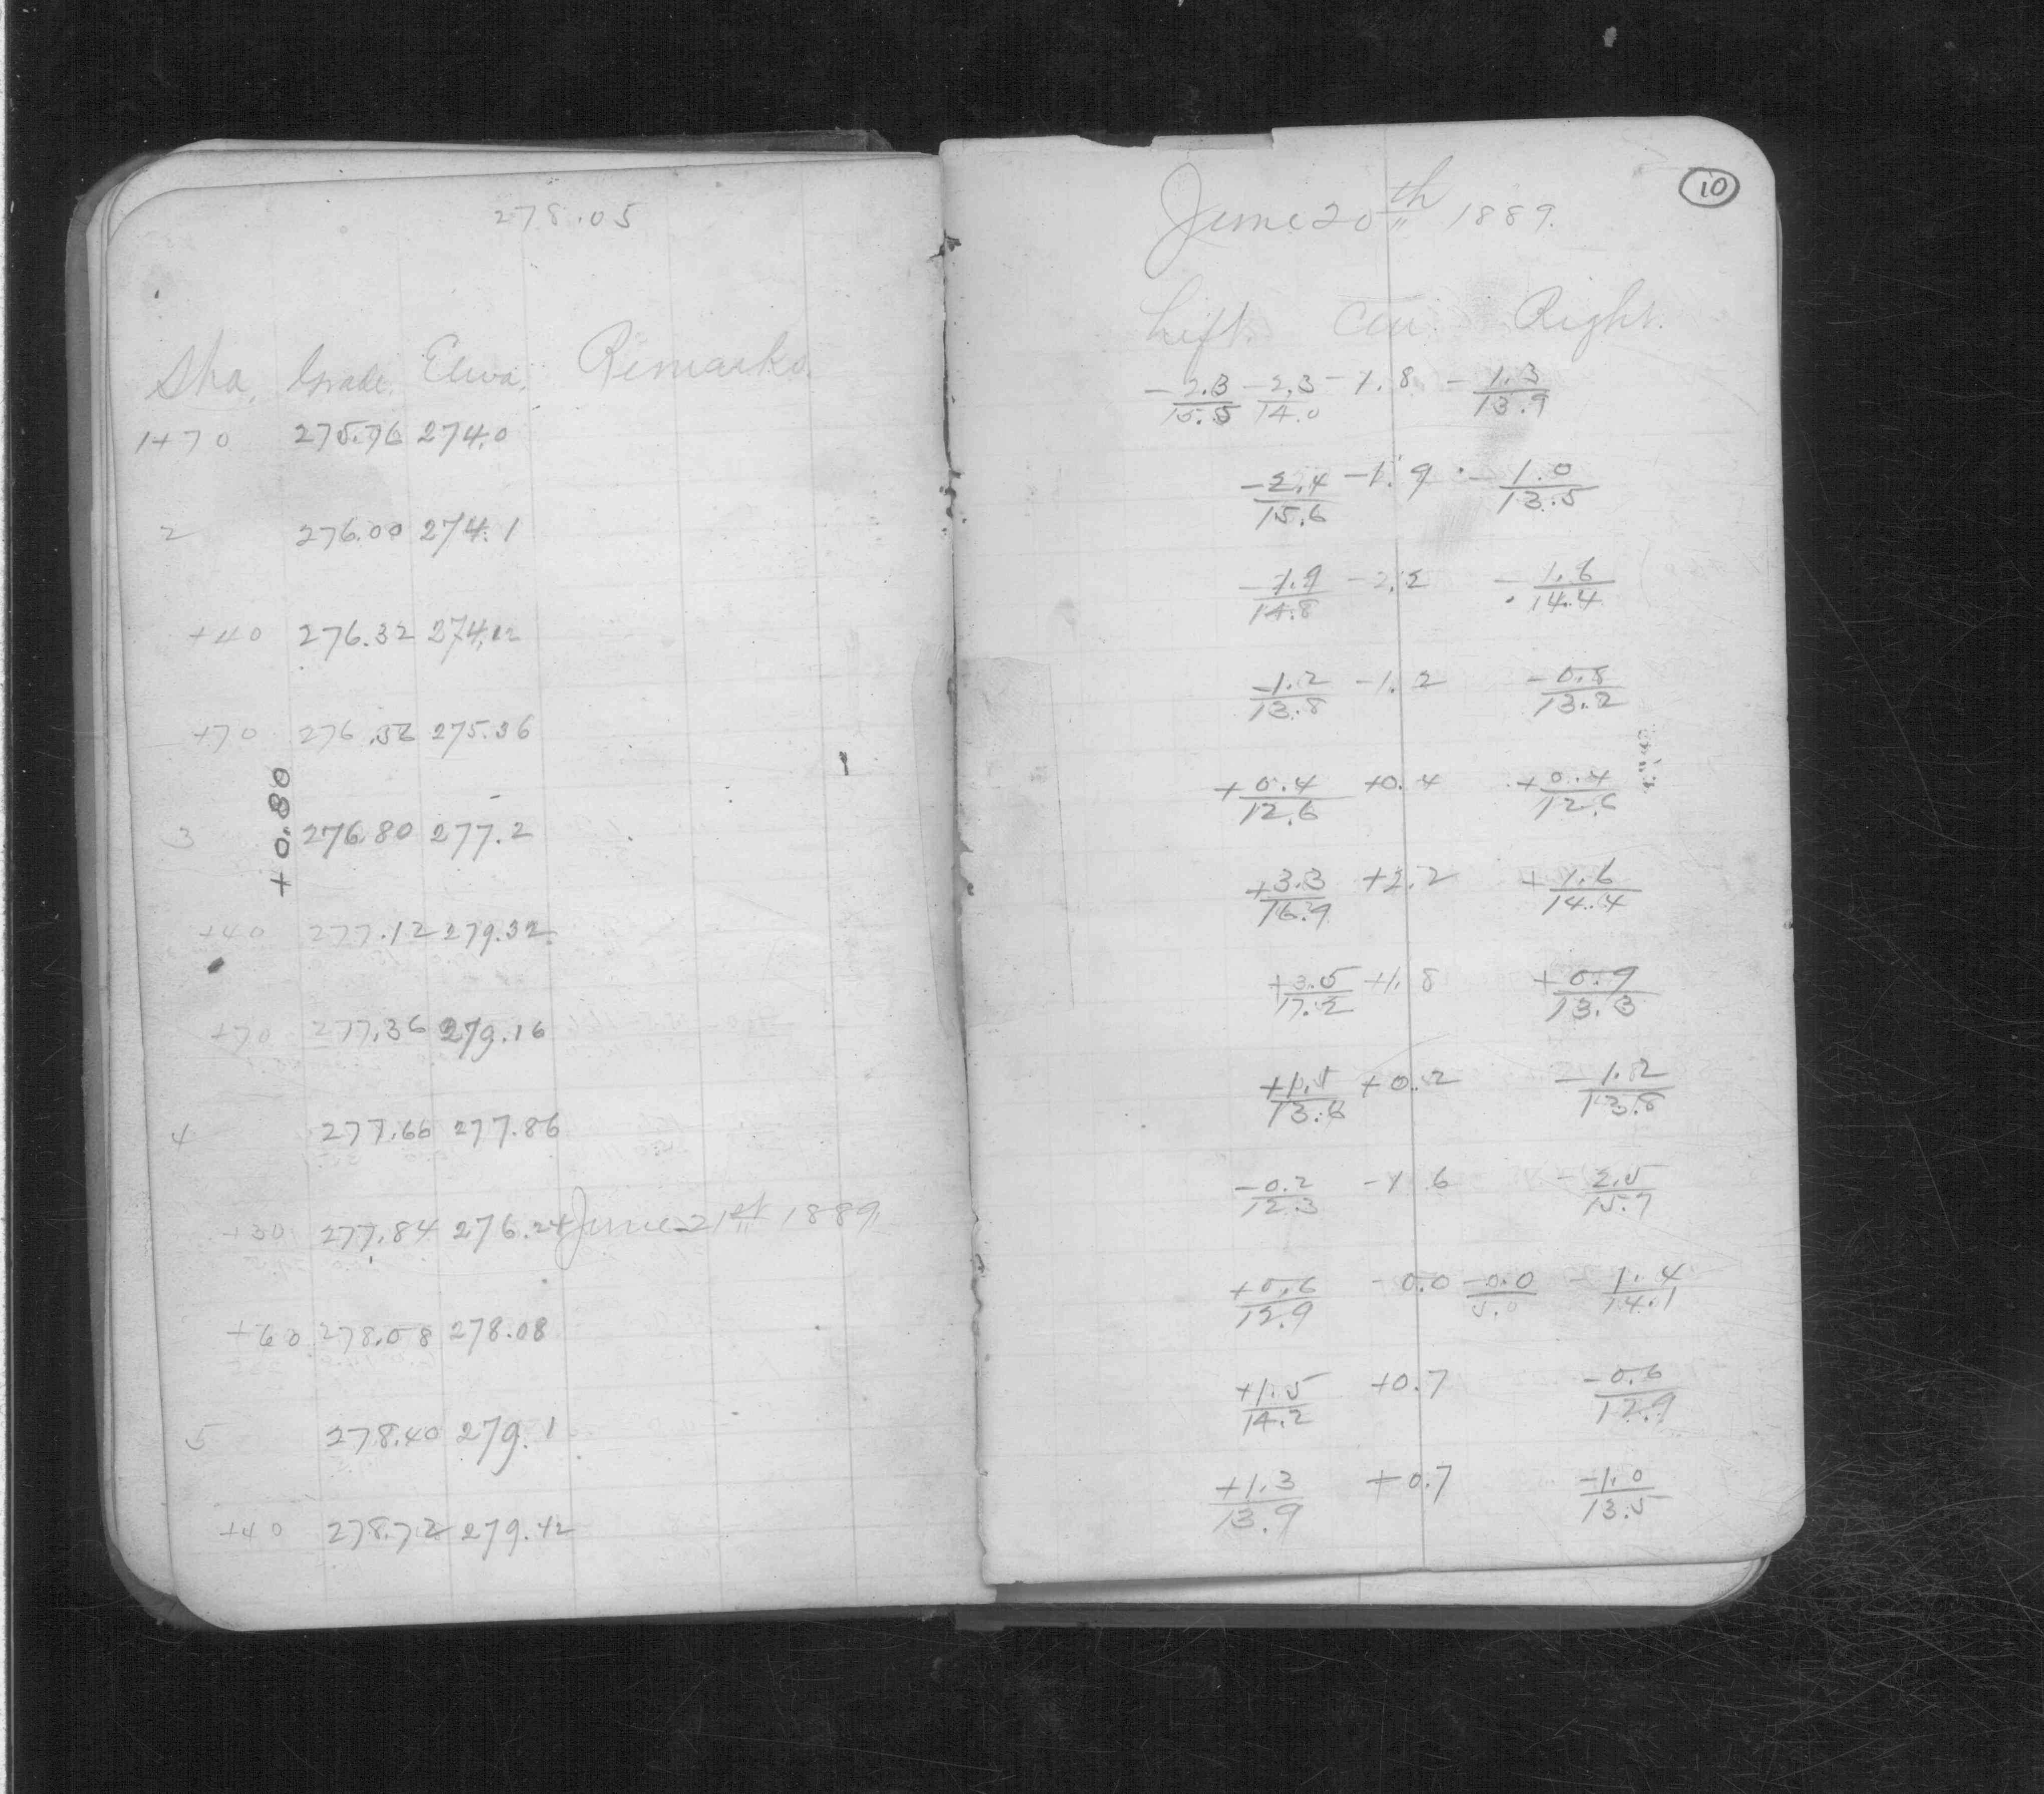 278.05
Sta. Grade. Eleva. Remarks.
1+70 275.76 274.0
2 276.00 274.1
+40 276.32 274.12
+70 276.32 275.36
+0.80
3 276.80 277.2
+40 277.12 279.32
+70 277.36 279.16
4 277.66 277.86
+30 277.84 276.24 June 21st 1889
+60 278.08 278.08
5 278.40 279.1
+40 278.72 279.42
10
June 20th 1889.
Left. Cen. Right.
-2.3/15.5 -2.3/14.0 -1.8 -1.3/13.9
-2.4/15.6 -1.9 -1.0/13.5
-1.9/14.8 -2.2 -1.6/14.4
-1.2/13.8 -1.2 -0.8/13.2
+0.4/12.6 +0.4 +0.4/12.6
+3.3/16.9 +2.2 +1.6/14.4
+3.5/17.2 +1.8 +0.9/13.3
+1.1/13.6 +0.2 -1.2/13.8
-0.2/12.3 -1.6 -2.5/15.7
+0.6/12.9 -0.0 -0.0/5.0 -1.4/14.1
+1.5/14.2 +0.7 -0.6/12.9
+1.3/13.9 +0.7 -1.0/13.5